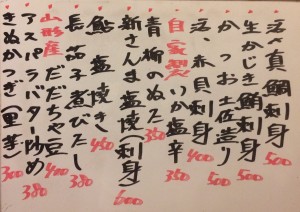 活〆真鯛刺身 500
生かじき鯛刺身 500
かつお土佐造り 500
活、赤貝刺身 400
自家製いか塩辛 350
青柳のぬた 350
新さんま塩焼(刺身) 600
鮎塩焼き 450
長茄子煮びたし 380
山形産だだちゃ豆 400
アスパラバター炒め 380
きぬかつぎ(里芋) 300